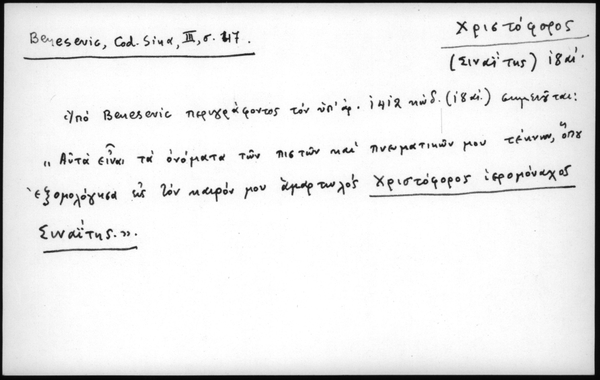 Benesevic, Cod. Sina, III, σ. 247.
Χριστόφορος
(Σιναΐτης) ι8αί.
Ὑπό Benesevic περιγράφοντος τόν ὑπ' ἀρ. 1412 κώδ. (ι8αἰ.) σημειοῦται:
„ Αὐτὰ εἶναι τά ὀνόματα τῶν πιστῶν καί πνευματικῶν μου τέκνων, ὅπου
ἐξομολόγησα εἰς τόν καιρόν μου ἁμαρτωλός Χριστόφορος ἱερομόναχος
Σιναΐτης.».